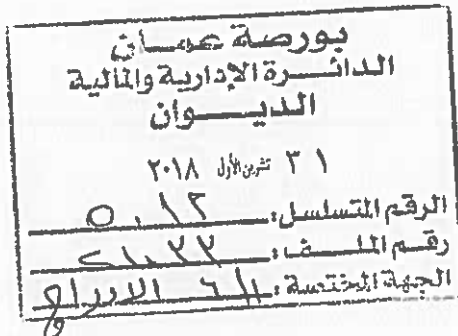 بورصة عمان
الدائرة الإدارية والمالية
الديوان
٣١ تشرين الأول ٢٠١٨
الرقم المتسلسل: ٥٠١٢
رقم الملف:
الجهة المختصة: الادراج